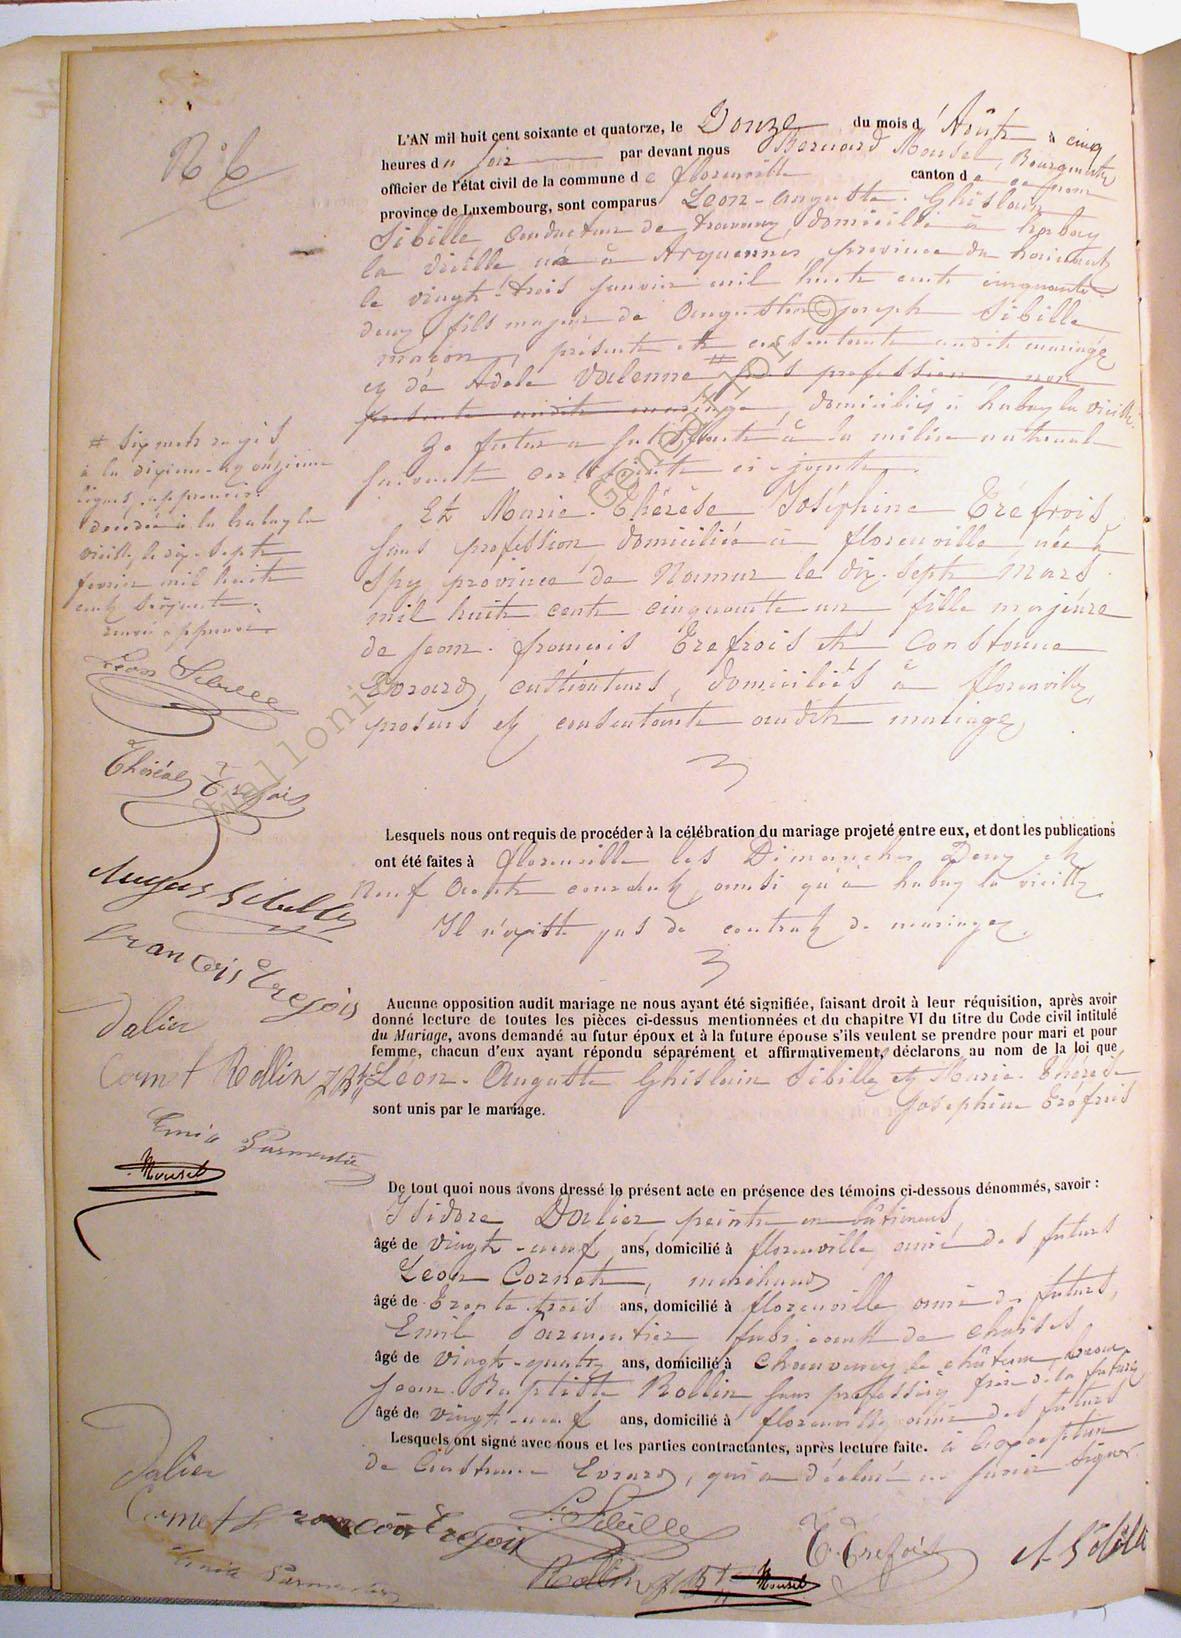 N° 6
L'AN mil huit cent soixante et quatorze, le Douze du mois d'Août à cinq
heures du soir par devant nous Bernard Mousel, Bourgmestre
officier de l'état civil de la commune de florenville canton de ce nom
province de Luxembourg, sont comparus Léon-Auguste-Ghislain
Sibille conducteur de travaux, domicilié à habay
la vieille né à Arquennes, province du hainaut
le vingt-trois janvier mil huit cent cinquante
deux fils majeur de Augustin joseph Sibille
maçon, présent et consentant audit mariage
et de Adèle Valenne # sans profession non
présente audit mariage, domiciliés à habay la vieille.
Le futur a satisfait à la milice nationale
suivant certificat ci-joint.
Et Marie-Thérèse Joséphine Tréfrois
sans profession, domiciliée à florenville, née à
Spy province de Namur le dix-sept Mars
mil huit cent cinquante un fille majeure
de jean-françois Trefrois et Constance
Evrard, cultivateurs, domiciliés à florenville,
présents et consentants audit mariage,
# Six mots rayés
à la dixième et onzième
lignes approuvés.
décédée à habay la
vieille, le dix-sept
février mil huit
cent soixante.
renvoi approuvé.
Léon Sibille
Thérèse Trefois
August Sibille
François Trefois
Dalier
Cornet Rollin J Bte
Emile Parmentier
Mousel
Lesquels nous ont requis de procéder à la célébration du mariage projeté entre eux, et dont les publications
ont été faites à florenville les Dimanches Deux et
Neuf Août courant, ainsi qu'à habay la vieille
Il n'existe pas de contrat de mariage.
Aucune opposition audit mariage ne nous ayant été signifiée, faisant droit à leur réquisition, après avoir
donné lecture de toutes les pièces ci-dessus mentionnées et du chapitre VI du titre du Code civil intitulé
du Mariage, avons demandé au futur époux et à la future épouse s'ils veulent se prendre pour mari et pour
femme, chacun d'eux ayant répondu séparément et affirmativement, déclarons au nom de la loi que
Léon-Auguste Ghislain Sibille et Marie-Thérèse
Joséphine Tréfrois
sont unis par le mariage.
De tout quoi nous avons dressé le présent acte en présence des témoins ci-dessous dénommés, savoir :
Isidore Dalier peintre en bâtiments,
âgé de vingt-neuf ans, domicilié à florenville, ami des futurs
Léon Cornet, marchand
âgé de trente-trois ans, domicilié à florenville ami des futurs,
Emil Parmentier fabricant de chaises
âgé de vingt-quatre ans, domicilié à Chauvency le château,
Jean-Baptiste Rollin, sans profession,
âgé de vingt-neuf ans, domicilié à florenville, ami des futurs
Lesquels ont signé avec nous et les parties contractantes, après lecture faite. à l'exception
de Constance Evrard, qui a déclaré ne savoir signer.
Dalier
Cornet L françois Trefois
L. Sibille
T. Trefois
A Sibille
Emile Parmentier
Rollin J Bte
Mousel